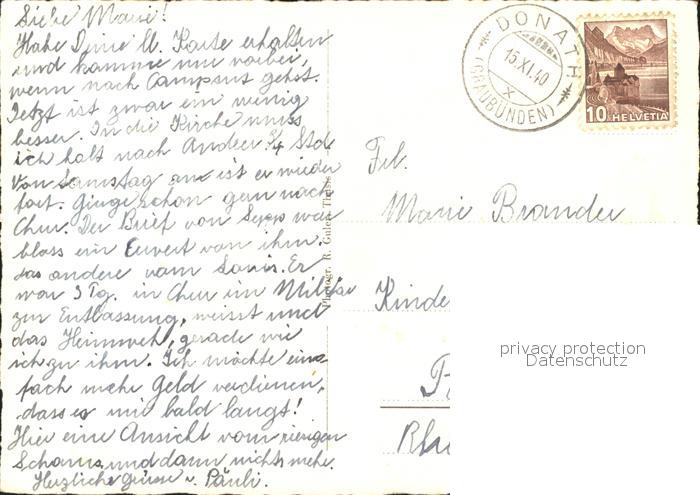 Liebe Marie!
Habe Deine lb. Karte erhalten
und komme nur vorbei,
wenn nach Campsut gehst.
Jetzt ist zwar ein wenig
besser. In die Kirche muss
ich halt nach Andeer. ¾ Std.
Von Samstag an ist er wieder
fort. Ginge schon gern nach
Chur. Der Brief von Sepp war
bloss ein Cuvert von ihm.
das andere vom Louis. Er
war 3 Tg. in Chur im Militär
zur Entlassung, weisst und
das Heimweh, gerade wie
ich zu ihm. Ich möchte ein-
fach mehr Geld verdienen,
dass es mir bald langt!
Hier eine Ansicht vom riesigen
Schams, und dann nichts mehr.
Herzliche Grüsse v. Päuli.
Photogr. R. Guler, Thusis
DONATH
(GRAUBÜNDEN)
15.XI.40
X
10 HELVETIA
Frl.
Marie Brander
Kinde
Rhu
privacy protection
Datenschutz